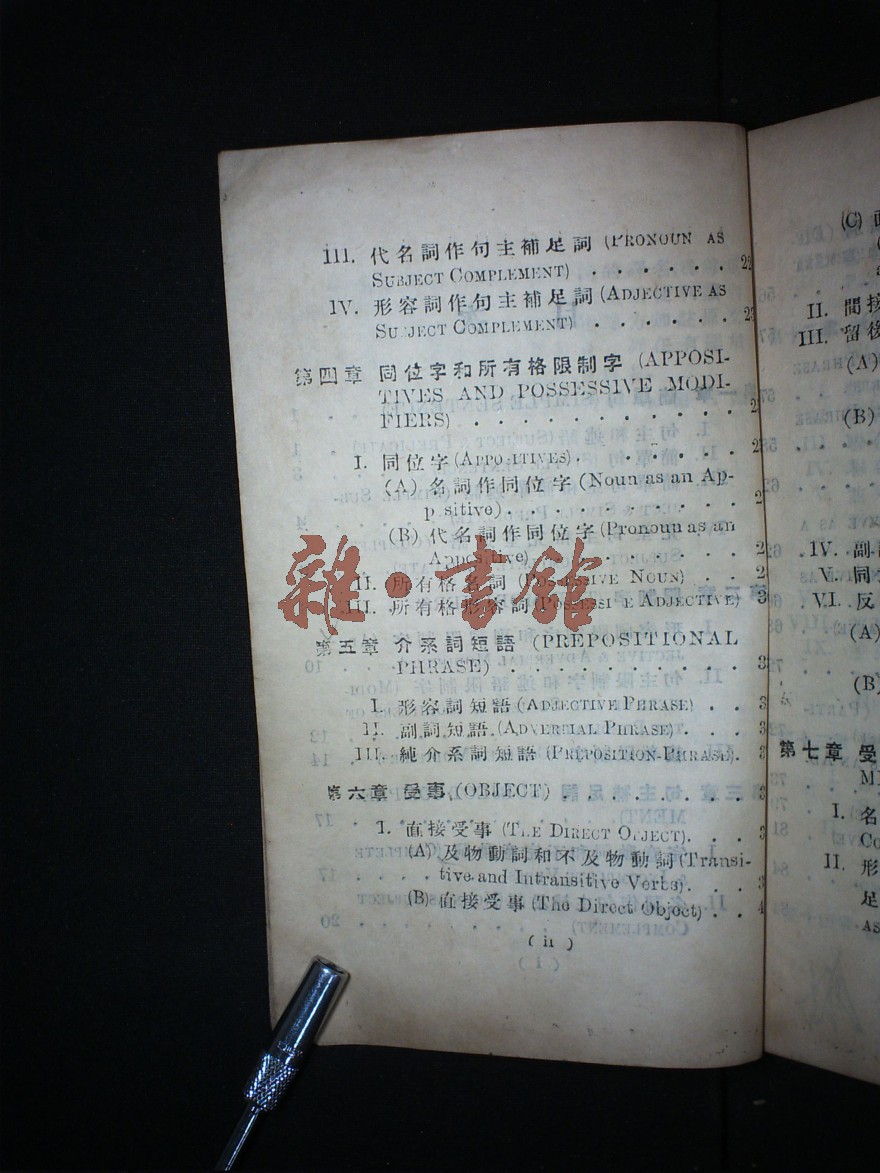 III. 代名詞作句主補足詞 (PRONOUN AS
SUBJECT COMPLEMENT) . . . . . . . 22
IV. 形容詞作句主補足詞 (ADJECTIVE AS
SUBJECT COMPLEMENT) . . . . . . . 23
第四章 同位字和所有格限制字 (APPOSI-
TIVES AND POSSESSIVE MODI-
FIERS) . . . . . . . . . . . 2
I. 同位字 (APPOSITIVES) . . . . . . . 2
(A) 名詞作同位字 (Noun as an Ap-
positive) . . . . . . . . . . 2
(B) 代名詞作同位字 (Pronoun as an
Appositive) . . . . . . . . . 2
II. 所有格名詞 (POSSESSIVE NOUN) . . 2
III. 所有格形容詞 (POSSESSIVE ADJECTIVE) 3
第五章 介系詞短語 (PREPOSITIONAL
PHRASE) . . . . . . . . . . 32
I. 形容詞短語 (ADJECTIVE PHRASE) . . 3
II. 副詞短語 (ADVERBIAL PHRASE) . . . 3
III. 純介系詞短語 (PREPOSITION-PHRASE) . 3
第六章 受事 (OBJECT) . . . . . . . . 3
I. 直接受事 (THE DIRECT OBJECT) . . . 3
(A) 及物動詞和不及物動詞 (Transi-
tive and Intransitive Verbs) . . . 3
(B) 直接受事 (The Direct Object) . . 4
( ii )
雜·書館
(C)
(
a
II. 間接
III. 留後
(A)
(B)
IV. 副
V. 同
VI. 反
(A)
(B)
第七章 受
M
I. 名
Co
II. 形
足
AS